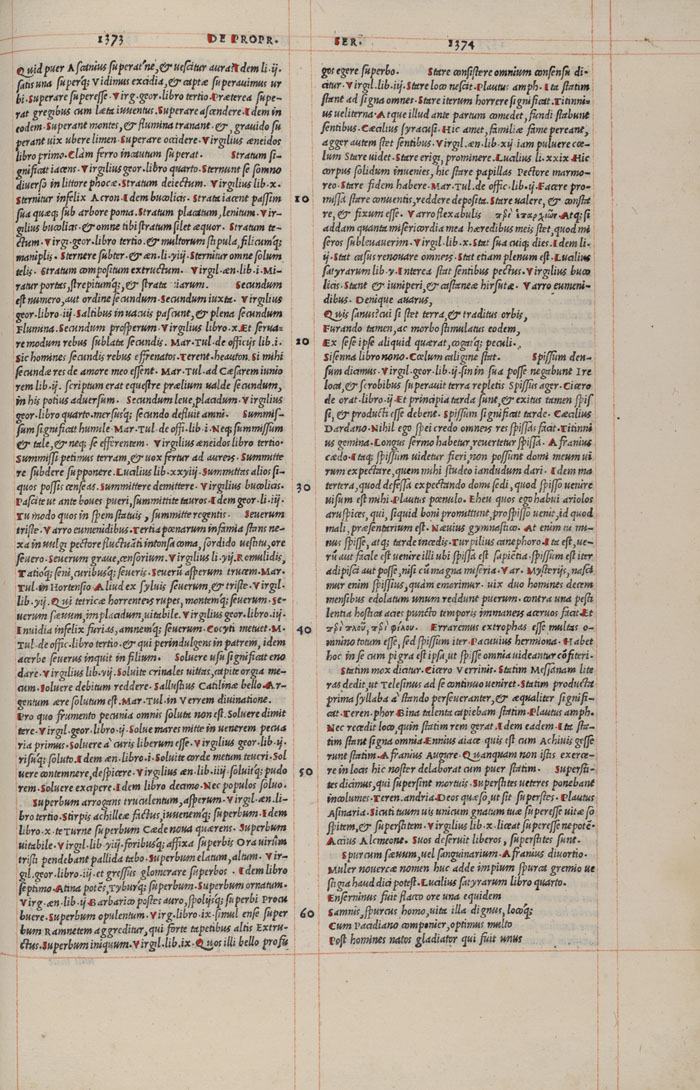 1373 DE PROPR.
Quid puer Ascanius superat ne, & uescitur aura? Idem li. ij.
satis una superq; Vidimus excidia, & captæ superauimus ur
bi. Superare superesse. Virg. geor. libro tertio. Præterea supe-
rat gregibus cum læta iuuentus. Superare ascendere. Idem in
eodem. Superant montes, & flumina tranant. &, grauido su
perant uix ubere limen. Superare occidere. Virgilius æneidos
libro primo. Clam ferro incautum superat. Stratum si-
gnificat iacens. Virgilius geor. libro quarto. Sternunt se somno
diuerso in littore phocæ. Stratum deiectum. Virgilius lib. x.
Sternitur infelix Acron. Idem bucolicis. Strata iacent passim
sua quæq; sub arbore poma. Stratum placatum, lenitum. Vir-
gilius bucolicis. & omne tibi stratum silet æquor. Stratum te-
ctum. Virgi. geor. libro tertio. & multorum stipula, filicumq;
maniplis. Sternere subter. & æn. li. viij. Sternitur omne solum
telis. Stratum compositum extructum. Virgil. æn. lib. i. Mi-
ratur portas, strepitumq;, & strata uiarum. Secundum
est numero, aut ordine secundum. Secundum iuxta. Virgilius
geor. lib. iij. Saltibus in uacuis pascunt, & plena secundum
Flumina. Secundum prosperum. Virgilius libro. x. Et serua-
re modum rebus sublate secundis. Mar. Tul. de officijs lib. i.
Sic homines secundis rebus effrenatos. Terent. heauton. Si mihi
secundæ res de amore meo essent. Mar. Tul. ad Cæsarem iunio
rem lib. ij. scriptum erat equestre prælium ualde secundum,
in his potius aduersum. Secundum leue, placidum. Virgilius
geor. libro quarto. mersusq; secundo defluit amni. Summis-
sum significat humile. Mar. Tul. de offi. lib. i. Neq; summissum
& tale, & neq; se efferentem. Virgilius æneidos libro tertio.
Summissi petimus terram, & uox fertur ad aureis. Summitte
re subdere supponere. Lucilius lib. xxviij. Summittas alios si-
quos possis censeas. Summittere demittere. Virgilius bucolicis.
Pascite ut ante boues pueri, summittite tauros. Idem geor. li. iij.
Tu modo quos in spem statuis, summitte regentis. Seuerum
triste. Varro eumenidibus. Tertia pœnarum infamia stans ne-
xa in uulgi pectore fluctuāti intonsa coma, sordido uestitu, ore
seuero. Seuerum graue, censorium. Virgilius li. vij. Romulidis,
Tatioq; seni, curibusq; seueris. Seuerū asperum trucem. Mar.
Tul. in Hortensio. Aliud ex syluis seuerum, & triste. Virgil.
lib. vij. Qui tetricæ horrenteis rupes, montemq; seuerum. Se-
uerum sæuum, implacidum, uitabile. Virgilius geor. libro. iij.
Inuidia infelix furias, amnemq; seuerum. Cocyti metuet. M.
Tul. de offic. libro tertio. & qui perindulgens in patrem, idem
acerbe seuerus inquit in filium. Soluere usu significat eno
dare. Virgilius li. vij. Soluite crinales uittas, capite orgia me-
cum. Soluere debitum reddere. Sallustius Catilinæ bello. Ar-
gentum ære solutum est. Mar. Tul. in Verrem diuinatione.
Pro quo frumento pecunia omnis soluta non est. Soluere dimit
tere. Virgil. geor. libro. ij. Solue mares mitte in uenerem pecua
ria primus. Soluere à curis liberum esse. Virgilius geor. lib. ij.
risuq; soluto. Idem æn. libro. i. Soluite corde metum teucri. Sol
uere contemnere, despicere. Virgilius æn. lib. iiij. soluitq; pudo
rem. Soluere exapere. Idem libro decamo. Nec populos soluo.
Superbum arrogans truculentum, asperum. Virgil. æn. li-
bro tertio. Stirpis achilleæ fastus, iuuenemq; superbum. Idem
libro. x. te Turne superbum Cæde noua quærens. Superbum
uitabile. Virgil. lib. viij. foribusq; affixa superbis Ora uirūm
tristi pendebant pallida tabo. Superbum elatum, altum. Vir-
gil. geor. libro. iij. et gressus glomerare superbos. Idem libro
septimo. Atina potēs, Tyburq; superbum. Superbum ornatum.
Virg. æn. lib. ij. Barbarico postes auro, spolijsq; superbi Procu
buere. Superbum opulentum. Virg. libro. ix. simul ense super
bum Ramnetem aggreditur, qui forte tapetibus altis Extru-
ctus. Superbum iniquum. Virgil. lib. ix. Quos illi bello profu
10
20
30
40
50
60
SER. 1374
gos egere superbo. Stare consistere omnium consensu di-
citur. Virgil. lib. iij. Stare loco nescit. Plautus amph. Ita statim
stant ad signa omnes. Stare iterum horrere significat. Titinni
us ueliterna. Atque illud ante partum comedet, fundi stabunt
sentibus. Cæcilius syracus. Hic amet, familiæ fame pereant,
ager autem stet sentibus. Virgil. æn. lib. xij iam puluere cœ-
lum Stare uidet. Stare erigi, prominere. Lucilius li. xxix. Hic
corpus solidum inuenies, hic stare papillas Pectore marmo-
reo. Stare fidem habere. Mar. Tul. de offic. lib. ij. Facere pro-
missa stare conuentis, reddere deposita. Stare ualere, & constā
re, & fixum esse. Varro flexabulis περὶ ἐπαρχιῶν. Atq; si
addam quanta misericordia mea hæredibus meis stet, quod mi
seros subleuauerim. Virgil. lib. x. Stat sua cuiq; dies. Idem li-
ij. stat casus renouare omneis. Stat etiam plenum est. Lucilius
satyrarum lib. v. Interea stat sentibus pectus. Virgilius buco
licis. Stant & iuniperi, & castaneæ hirsutæ. Varro eumeni-
dibus. Denique auarus,
Quis sanus? cui si stet terra, & traditus orbis,
Furando tamen, ac morbo stimulatus eodem,
Ex sese ipse aliquid quærat, cogatq; peculi.
Sisenna libro nono. Cœlum caligine stat. Spissum den-
sum dicimus. Virgil. geor. lib. ij. sin in sua posse negabunt Ire
loca, & scrobibus superauit terra repletis Spissus ager. Cicero
de orat. libro. ij. Et principia tarda sunt, & exitus tamen spis
si, & producti esse debent. Spissum significat tarde. Cæcilius
Dardano. Nihil ego spei credo omneis res spissas facit. Titinni
us gemina. Longus sermo habetur, reuertetur spissa. Afranius
cædo. Itaq; spissum uidetur fieri, non possunt domi meum ui
rum expectare, quem mihi studeo iandudum dari. Idem ma
tertera, quod defessa expectando domi sedi, quod spisso uenire
uisum est mihi. Plautus pœnulo. Eheu quos ego habui ariolos
aruspices, qui, siquid boni promittunt, pro spisso uenit, id quod
mali, præsentarium est. Næuius gymnastico. At enim tu ni-
nus spisse, atq; tarde incedis. Turpilius canephoro. Ita est, ue-
rū aut facile est uenire illi ubi spissa est sapiētia. spissum est iter
adipisci aut posse, nisi cū magna miseria. Var. Mysterijs, nasci
mur enim spissius, quàm emorimur. uix duo homines decem
mensibus edolatum unum reddunt puerum. contra una pesti
lentia hostica acies puncto temporis immaneis aceruos facit. Et
Erraremus extrophas esse multas o-
mnino totum esse, sed spissum iter. Pacuuius hermiona. Habet
hoc in se cum pigra est ipsa, ut spisse omnia uideantur cōfiteri.
Statim mox dicitur. Cicero Verrinis. Statim Messanam lite
ras dedit, ut Telesinus ad se continuo ueniret. Statim producta
prima syllaba à stando perseueranter, & æqualiter signifi-
cat. Teren. phor. Bina talenta capiebam statim. Plautus amph.
Nec recedit loco, quin statim rem gerat. Idem eadem. Ita sta-
tim stant signa omnia. Ennius aiace quis est cum Achiuis gesse
runt statim. Afranius Augure. Quanquam non istis exerce-
re in locis hic noster delaborat cum puer statim. Superst-
tes dicimus, qui supersint mortuis. Superstites ueteres ponebant
incolumes. Teren. andria. Deos quæso, ut sit superstes. Plautus
Asinaria. Sicuti tuum uis unicum gnatum tuæ superesse uitæ so
spitem, & superstitem. Virgilius lib. x. liceat superesse nepotē.
Accius Alcmeone. Suos deseruit liberos, superstites sunt.
Spurcum sæuum, uel sanguinarium. Afranius diuortio.
Mulier nouercæ nomen huc adde impium spurcat gremio ue
stigia haud dici potest. Lucilius satyrarum libro quarto.
Eserninus fuit flacco ore una equidem
Samnis, spurcus homo, uita illa dignus, locoq;
Cum Pacidiano componier, optimus multo
Post homines natos gladiator qui fuit unus